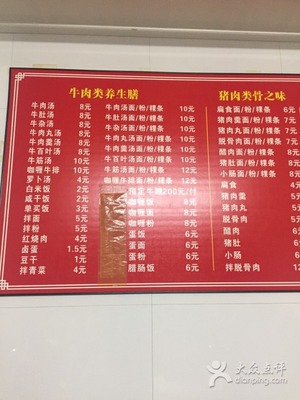 牛肉类养生膳
牛肉汤 8元
牛肚汤 8元
牛杂汤 8元
牛肉丸汤 8元
牛肉羹汤 8元
牛百叶汤 8元
牛筋汤 10元
咖喱牛排 10元
萝卜汤 4元
白米饭 2元
咸干饭 2元
单买饭 3元
拌面 5元
拌粉 5元
红烧肉 4元
卤蛋 1.5元
豆干 1元
拌青菜 4元
牛肉汤面/粉/粿条 10元
牛肚汤面/粉/粿条 10元
牛杂汤面/粉/粿条 10元
牛肉丸汤面/粉/粿条 10元
牛肉羹汤面/粉/粿条 10元
牛百叶汤面/粉/粿条 10元
牛筋汤面/粉/粿条 12元
咖喱牛排面/粉/粿条 12元
200元/
咖喱饭 8元
咖喱面 8元
咖喱粉 8元
蛋饭 6元
蛋面 6元
蛋粉 6元
腊肠饭 6元
猪肉类骨之味
扁食面/粉/粿条
猪肉羹面/粉/粿条
猪肉丸面/粉/粿条
脱骨肉面/粉/粿条
醋肉面/粉/粿条
猪肚面/粉/粿条
小肠面/粉/粿条
扁食 4元
猪肉羹 5元
猪肉丸 5元
脱骨肉 5元
醋肉 6元
猪肚 6元
小肠 6元
拌脱骨肉 12
大众点评
dianping.com